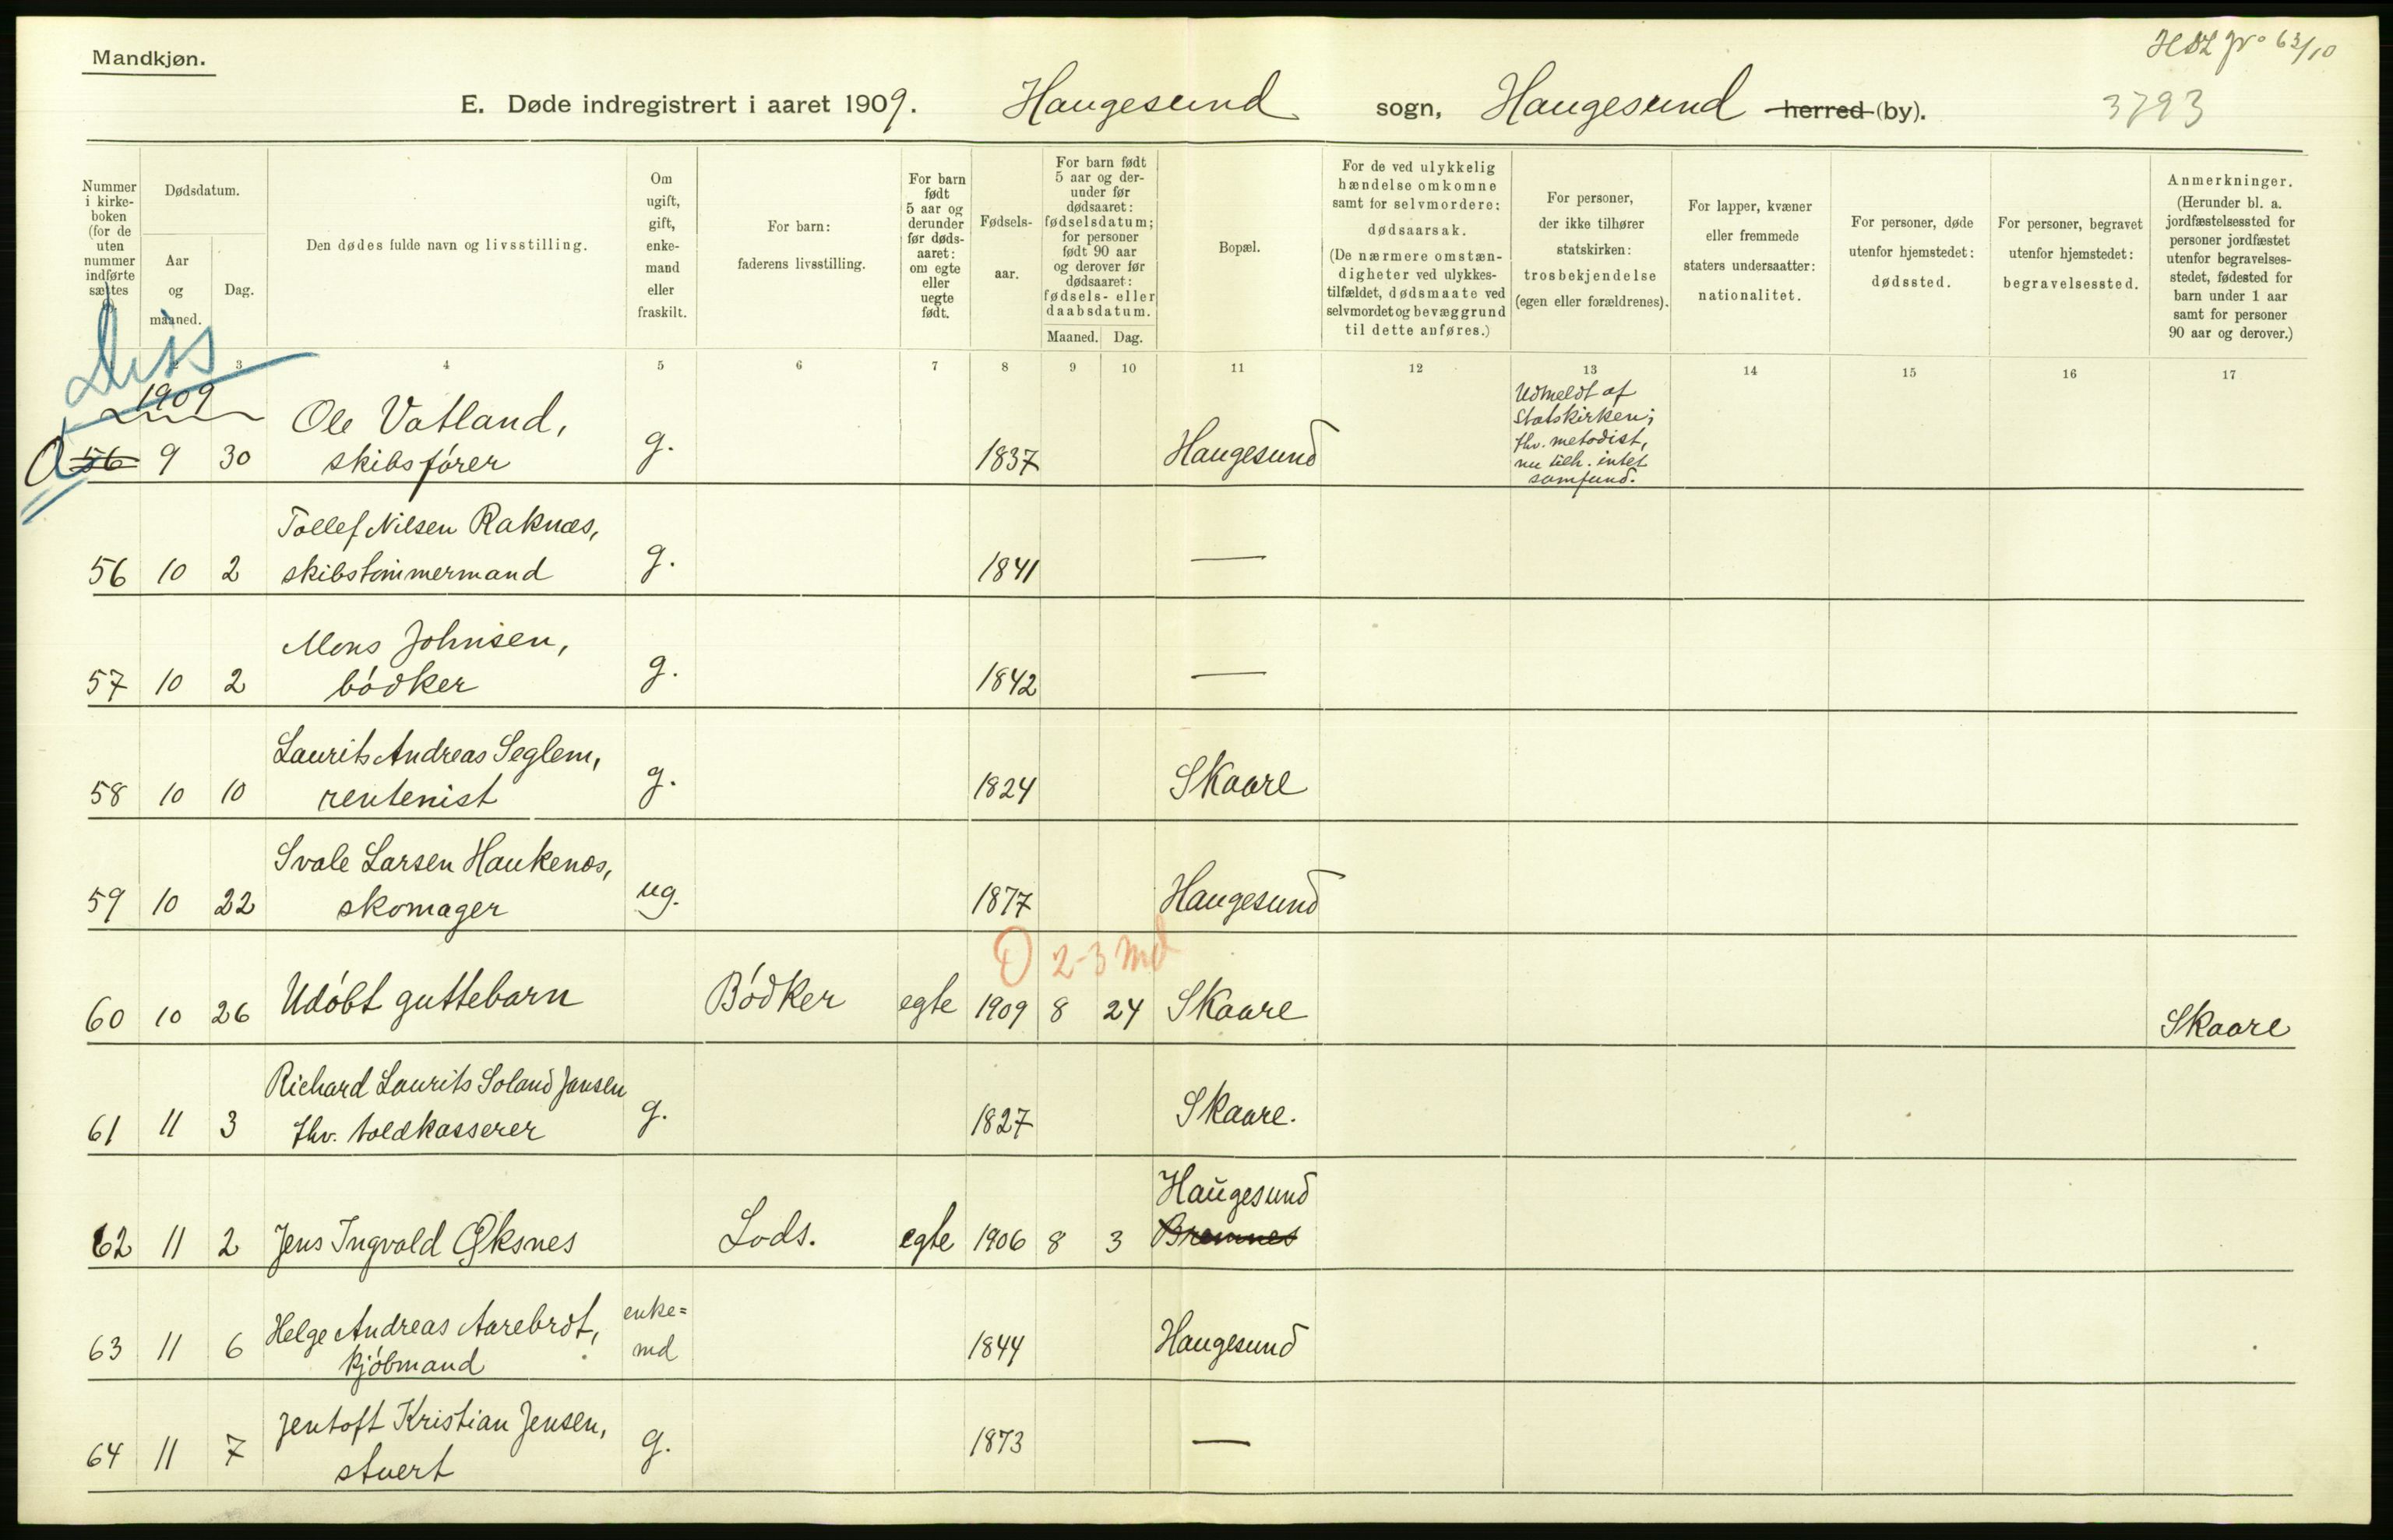 Mandkjøn.
No 63/10
3793
E. Døde indregistrert i aaret 1909. Haugesund sogn, Haugesund herred (by).
Nummer i kirke-boken (for de uten nummer indførte sættes
Dødsdatum.
Aar og maaned.
Dag.
Den dødes fulde navn og livsstilling.
Om ugift, gift, enke-mand eller fraskilt.
For barn: faderens livsstilling.
For barn født 5 aar og derunder før døds-aaret: om egte eller uegte født.
Fødsels-aar.
For barn født 5 aar og der-under før dødsaaret: fødselsdatum; for personer født 90 aar og derover før dødsaaret: fødsels- eller daabsdatum.
Maaned. Dag.
Bopæl.
For de ved ulykkelig hændelse omkomne samt for selvmordere: dødsaarsak. (De nærmere omstæn-digheter ved ulykkes-tilfældet, dødsmaate ved selvmordet og bevæggrund til dette anføres.)
For personer, der ikke tilhører statskirken: trosbekjendelse (egen eller forældrenes).
For lapper, kvæner eller fremmede staters undersaatter: nationalitet.
For personer, døde utenfor hjemstedet: dødssted.
For personer, begravet utenfor hjemstedet: begravelsessted.
Anmerkninger. (Herunder bl. a. jordfæstelsessted for personer jordfæstet utenfor begravelses-stedet, fødested for barn under 1 aar samt for personer 90 aar og derover.)
2 3 4 5 6 7 8 9 10 11 12 13 14 15 16 17
Diss
1909
0 56 9 30 Ole Vatland, skibsfører g. 1837 Haugesund Udmeldt af Statskirken; fhv. metodist, nu tilh. intet samfund.
56 10 2 Tollef Nilsen Raknæs, skibstømmermand g. 1841 —
57 10 2 Mons Johnsen, bódker g. 1842 —
58 10 10 Laurits Andreas Seglem, rentenist g. 1824 Skaare
59 10 22 Svale Larsen Haukenæs, skomager ug. 1877 Haugesund
2-3 md
60 10 26 Udóbt guttebarn Bódker egte 1909 8 24 Skaare Skaare
61 11 3 Richard Laurits Soland Jansen fhv. toldkasserer g. 1827 Skaare.
62 11 2 Jens Ingvald Øksnes Lods. egte 1906 8 3 Haugesund Bremnes
63 11 6 Helge Andreas Aarebrot, kjóbmand enke=md 1844 Haugesund
64 11 7 Jentoft Kristian Jensen, stuert g. 1873 —